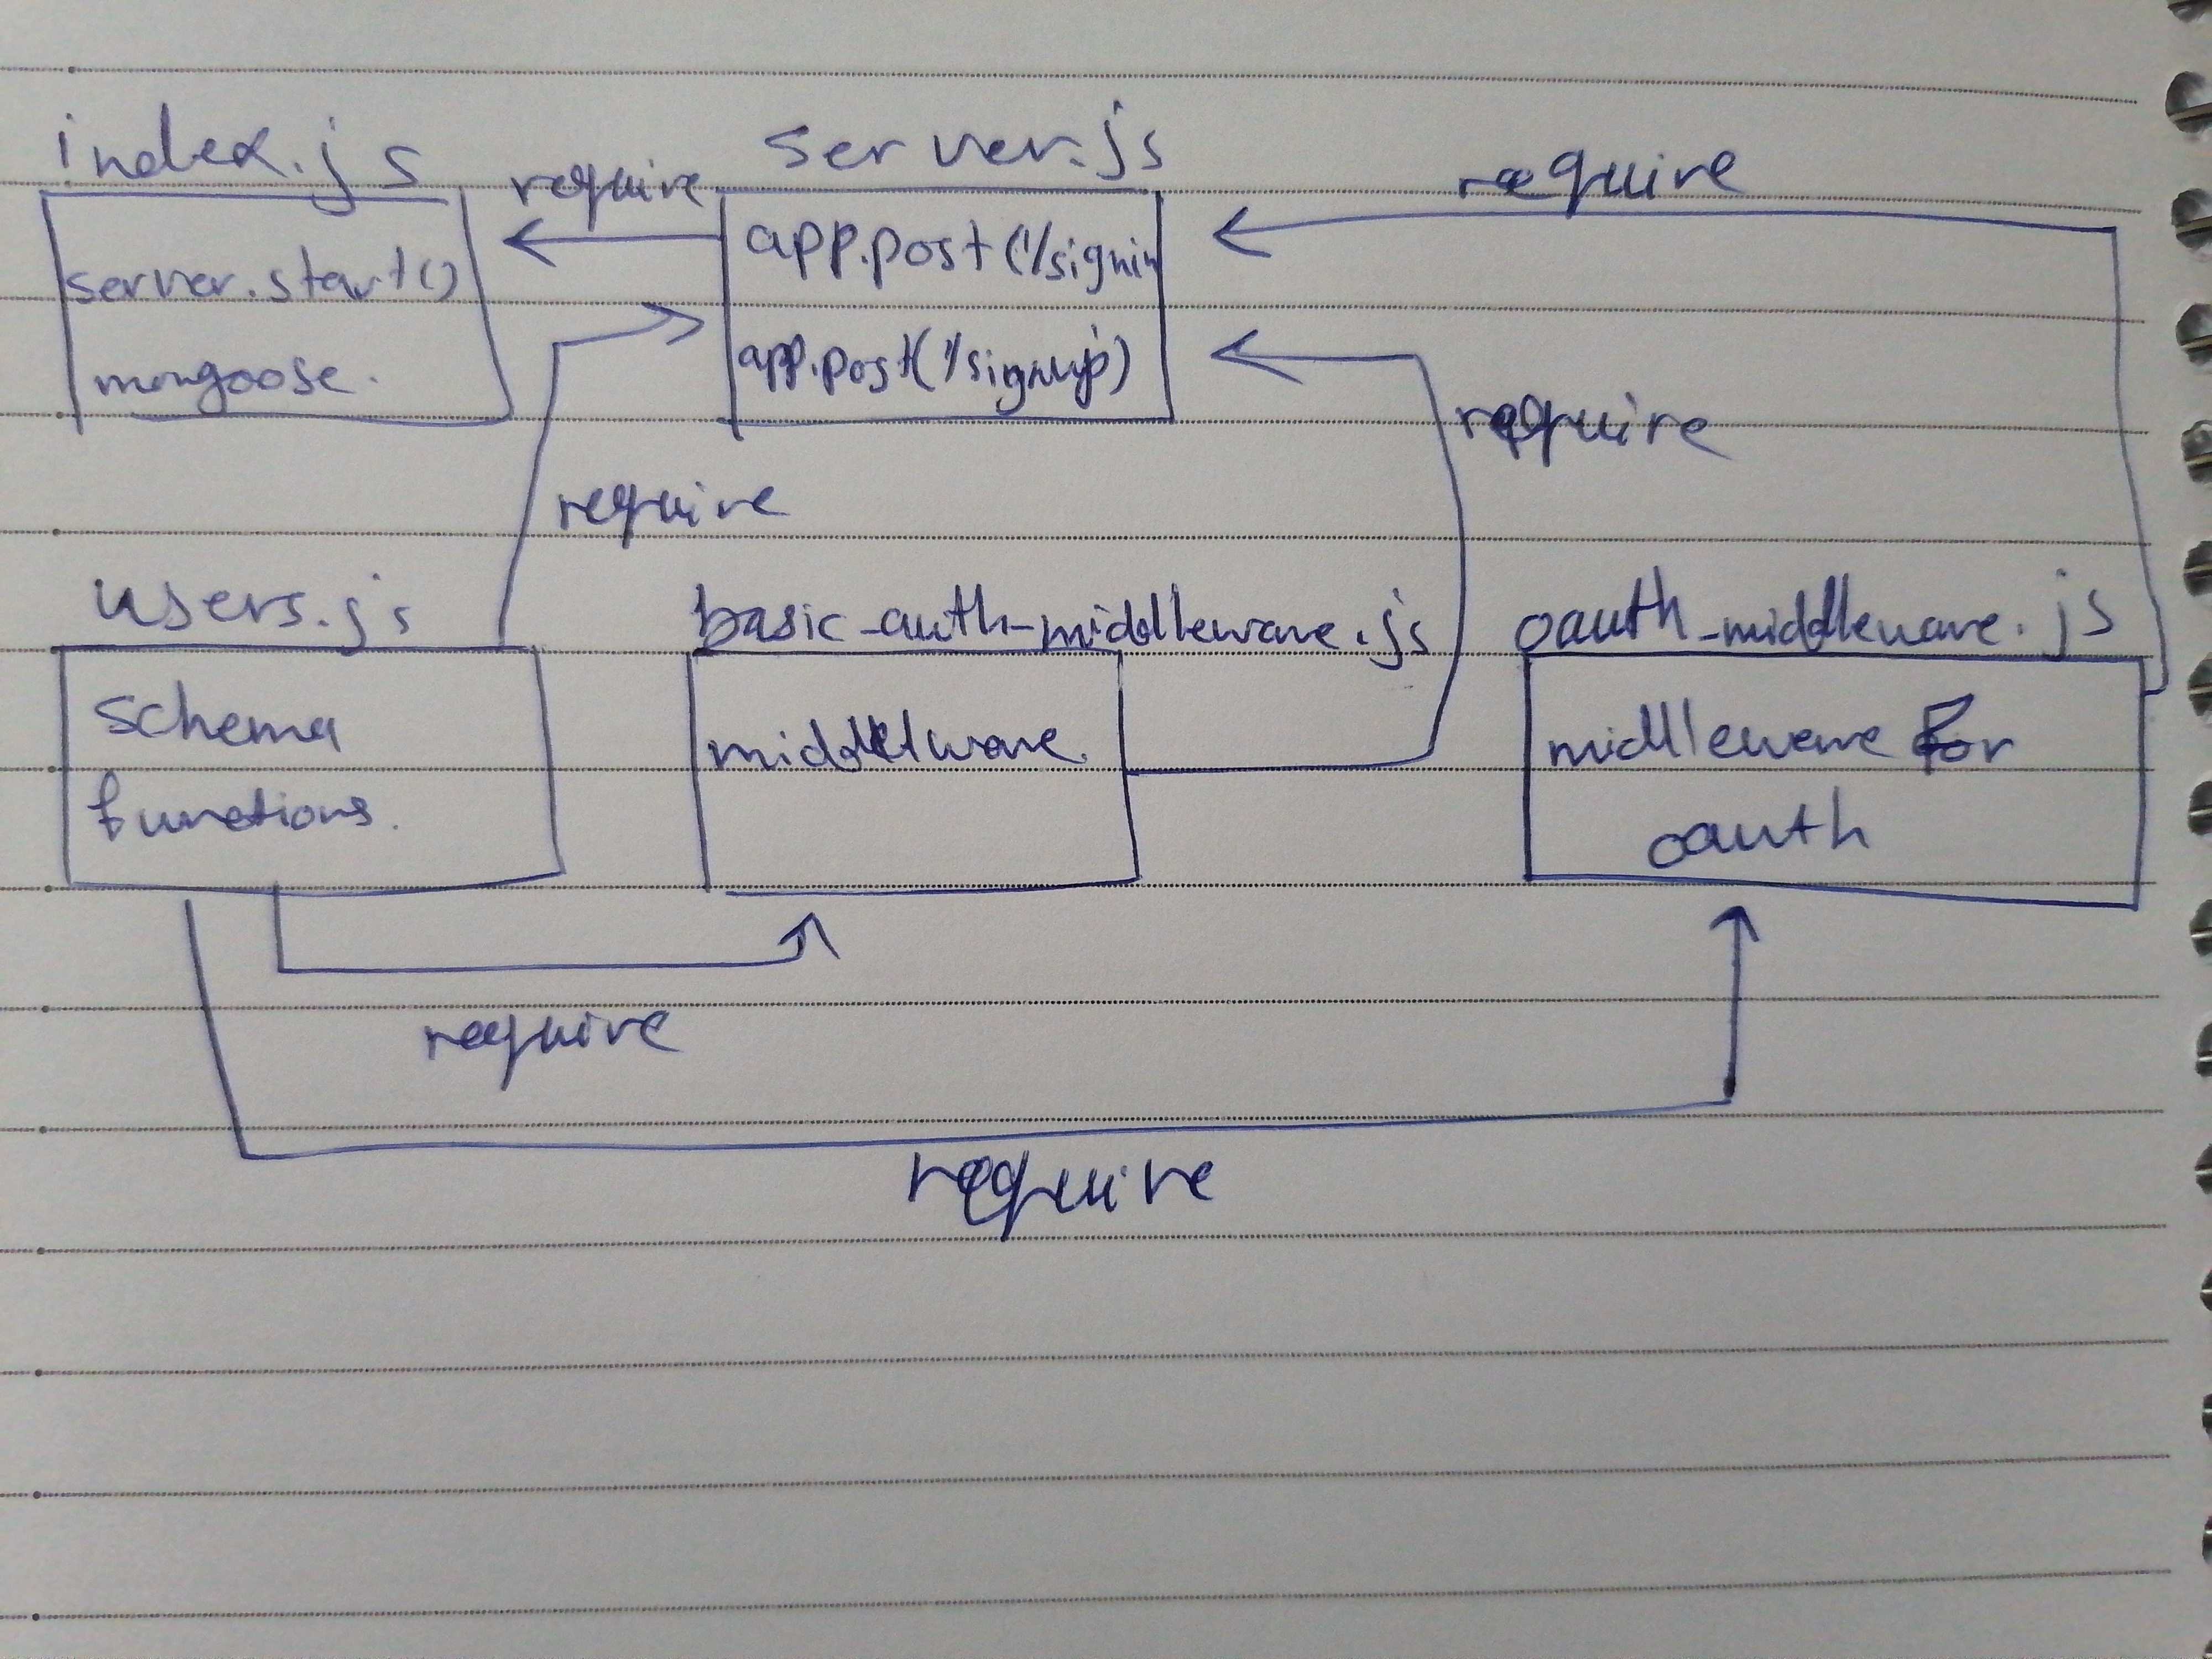 index.js
server.start()
mongoose.
require
server.js
app.post('/signin
app.post('/signup')
require
require
require
users.js
schema
functions.
basic-auth-middleware.js
middleware.
oauth-middleware.js
middleware for
oauth
require
require